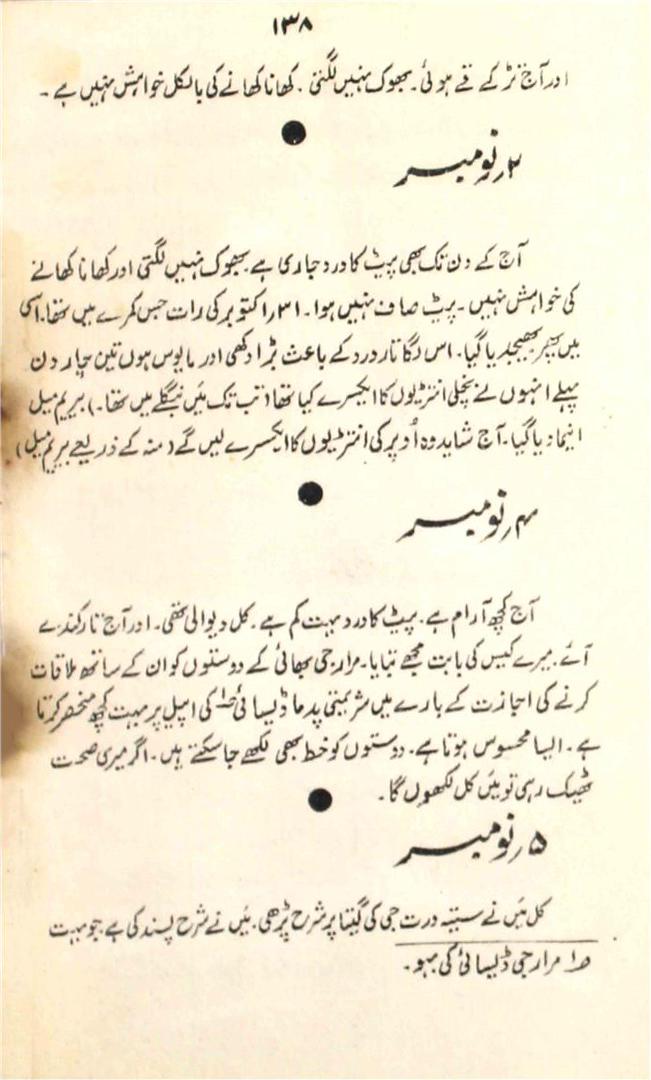 ۱۳۸
اور آج تڑکے قے ہوئی۔ بھوک نہیں لگتی۔ کھانا کھانے کی بالکل خواہش نہیں ہے۔
۲؍نومبر
آج کے دن تک بھی پیٹ کا درد جاری ہے۔ بھوک نہیں لگتی اور کھانا کھانے
کی خواہش نہیں۔ پیٹ صاف نہیں ہوا۔ ۳۱؍اکتوبر کی رات جس کمرے میں تھا۔ اسی
میں پھر بھیجدیا گیا۔ اس لگاتار درد کے باعث بڑا دکھی اور مایوس ہوں تین چار دن
پہلے انہوں نے نچلی انتڑیوں کا ایکسرے کیا تھا (تب تک میَں بنگلے میں تھا۔) بیریم میل
انیما دیا گیا۔ آج شاید وہ اُوپر کی انتڑیوں کا ایکسرے لیں گے (منہ کے ذریعے بیریم میل)
۴؍نومبر
آج کچھ آرام ہے۔ پیٹ کا درد بہت کم ہے۔ کل دیوالی تھی۔ اور آج تارکنڈے
آئے۔ میرے کیس کی بابت مجھے بتایا۔ مرارجی بھائی کے دوستوں کو ان کے ساتھ ملاقات
کرنے کی اجازت کے بارے میں شریمتی پدما ڈیسائی ؎۱ کی اپیل پر بہت کچھ منحصر کرتا
ہے۔ ایسا محسوس ہوتا ہے۔ دوستوں کو خط بھی لکھے جا سکتے ہیں۔ اگر میری صحت
ٹھیک رہی تو میَں کل لکھوں گا۔
۵؍نومبر
کل میَں نے ستیہ ورت جی کی گیتا پر شرح پڑھی۔ میَں نے شرح پسند کی ہے۔ جو بہت
؎۱ مرارجی ڈیسائی کی بہو۔